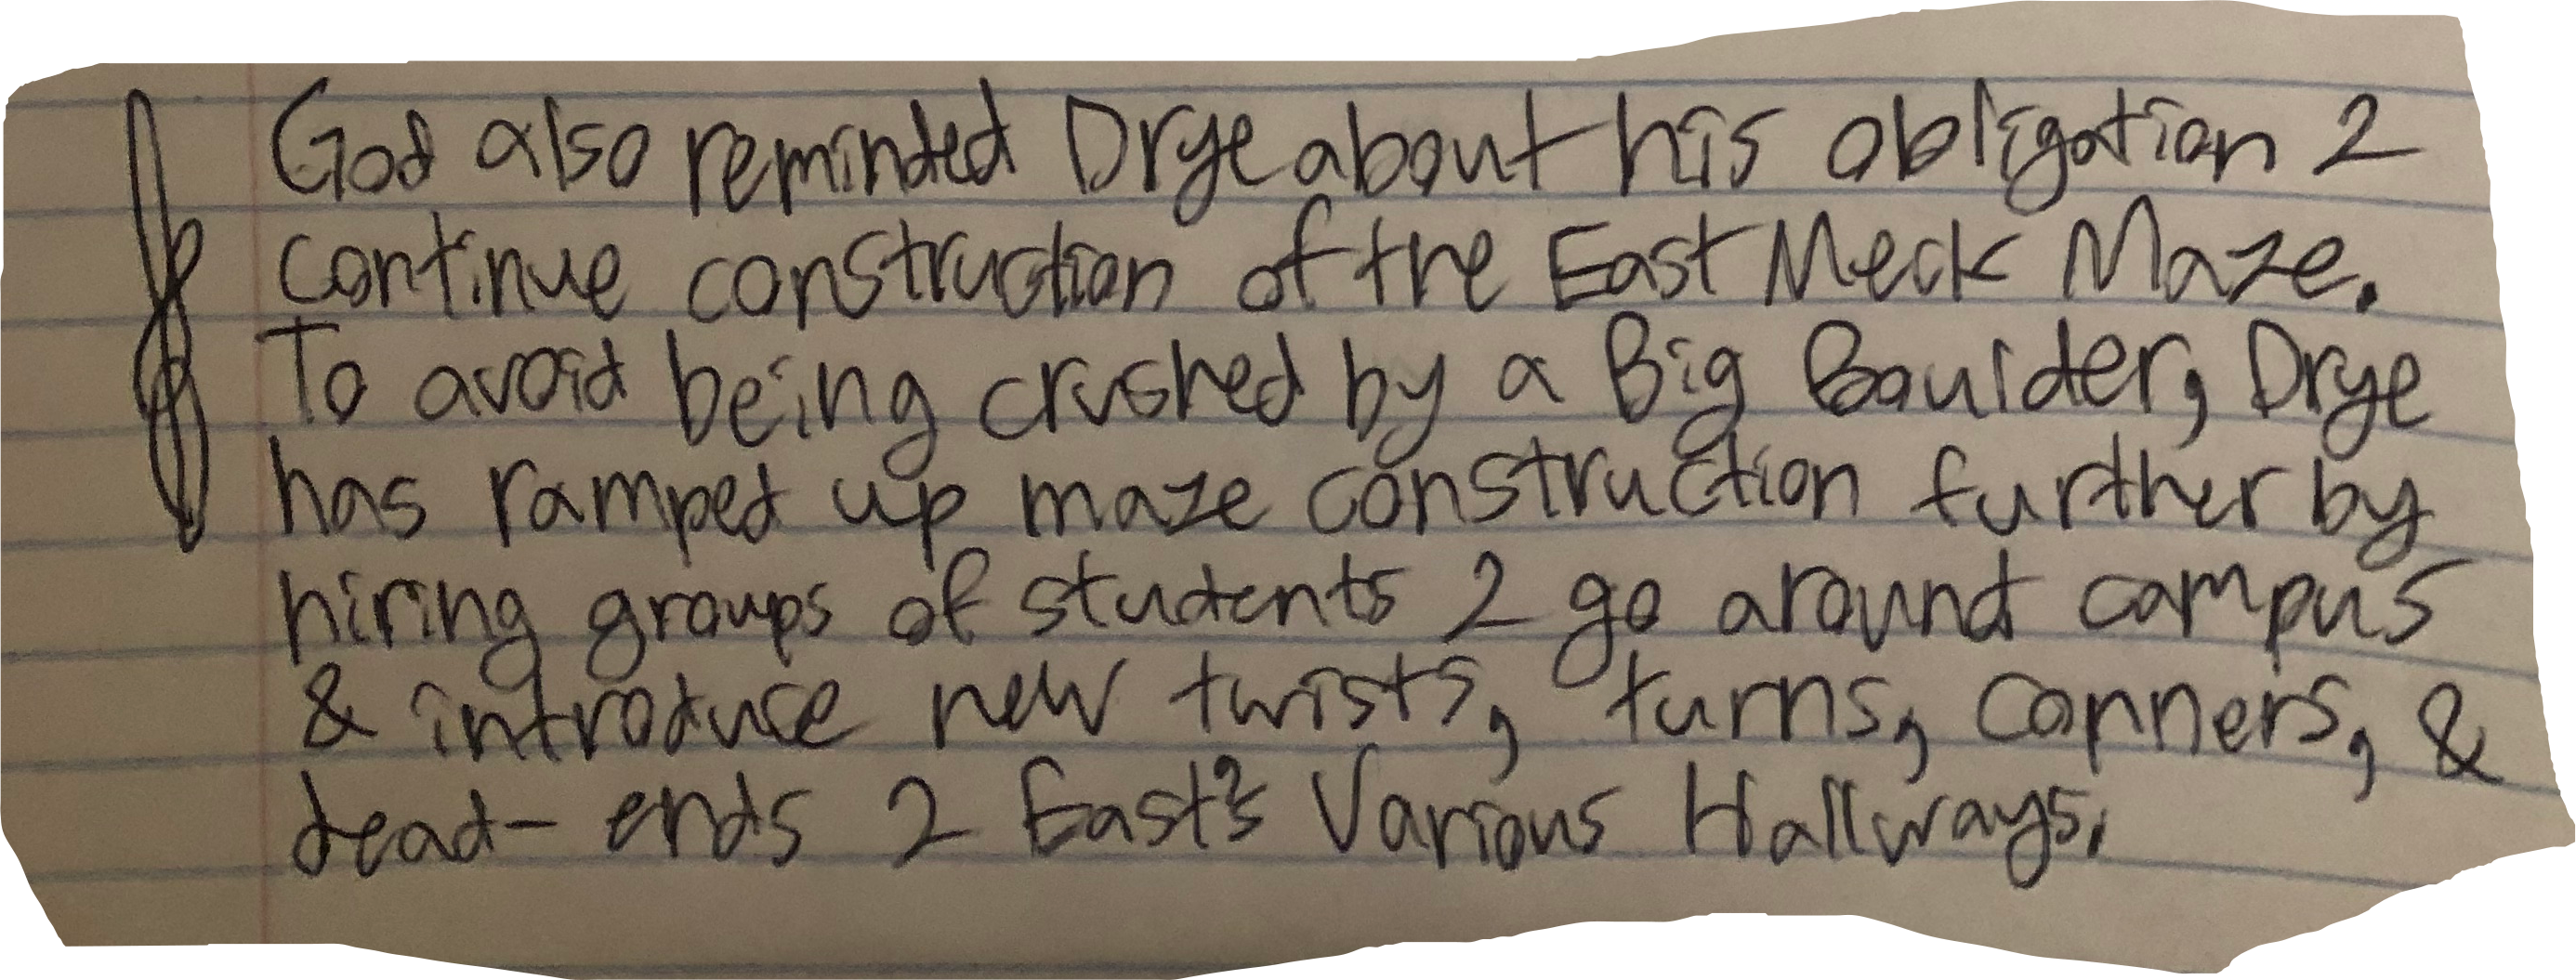 God also reminded Drye about his obligation 2
continue construction of the East Meck Maze.
To avoid being crushed by a Big Boulder, Drye
has ramped up maze construction further by
hiring groups of students 2 go around campus
& introduce new twists, turns, conners, &
dead-ends 2 East's Various Hallways.